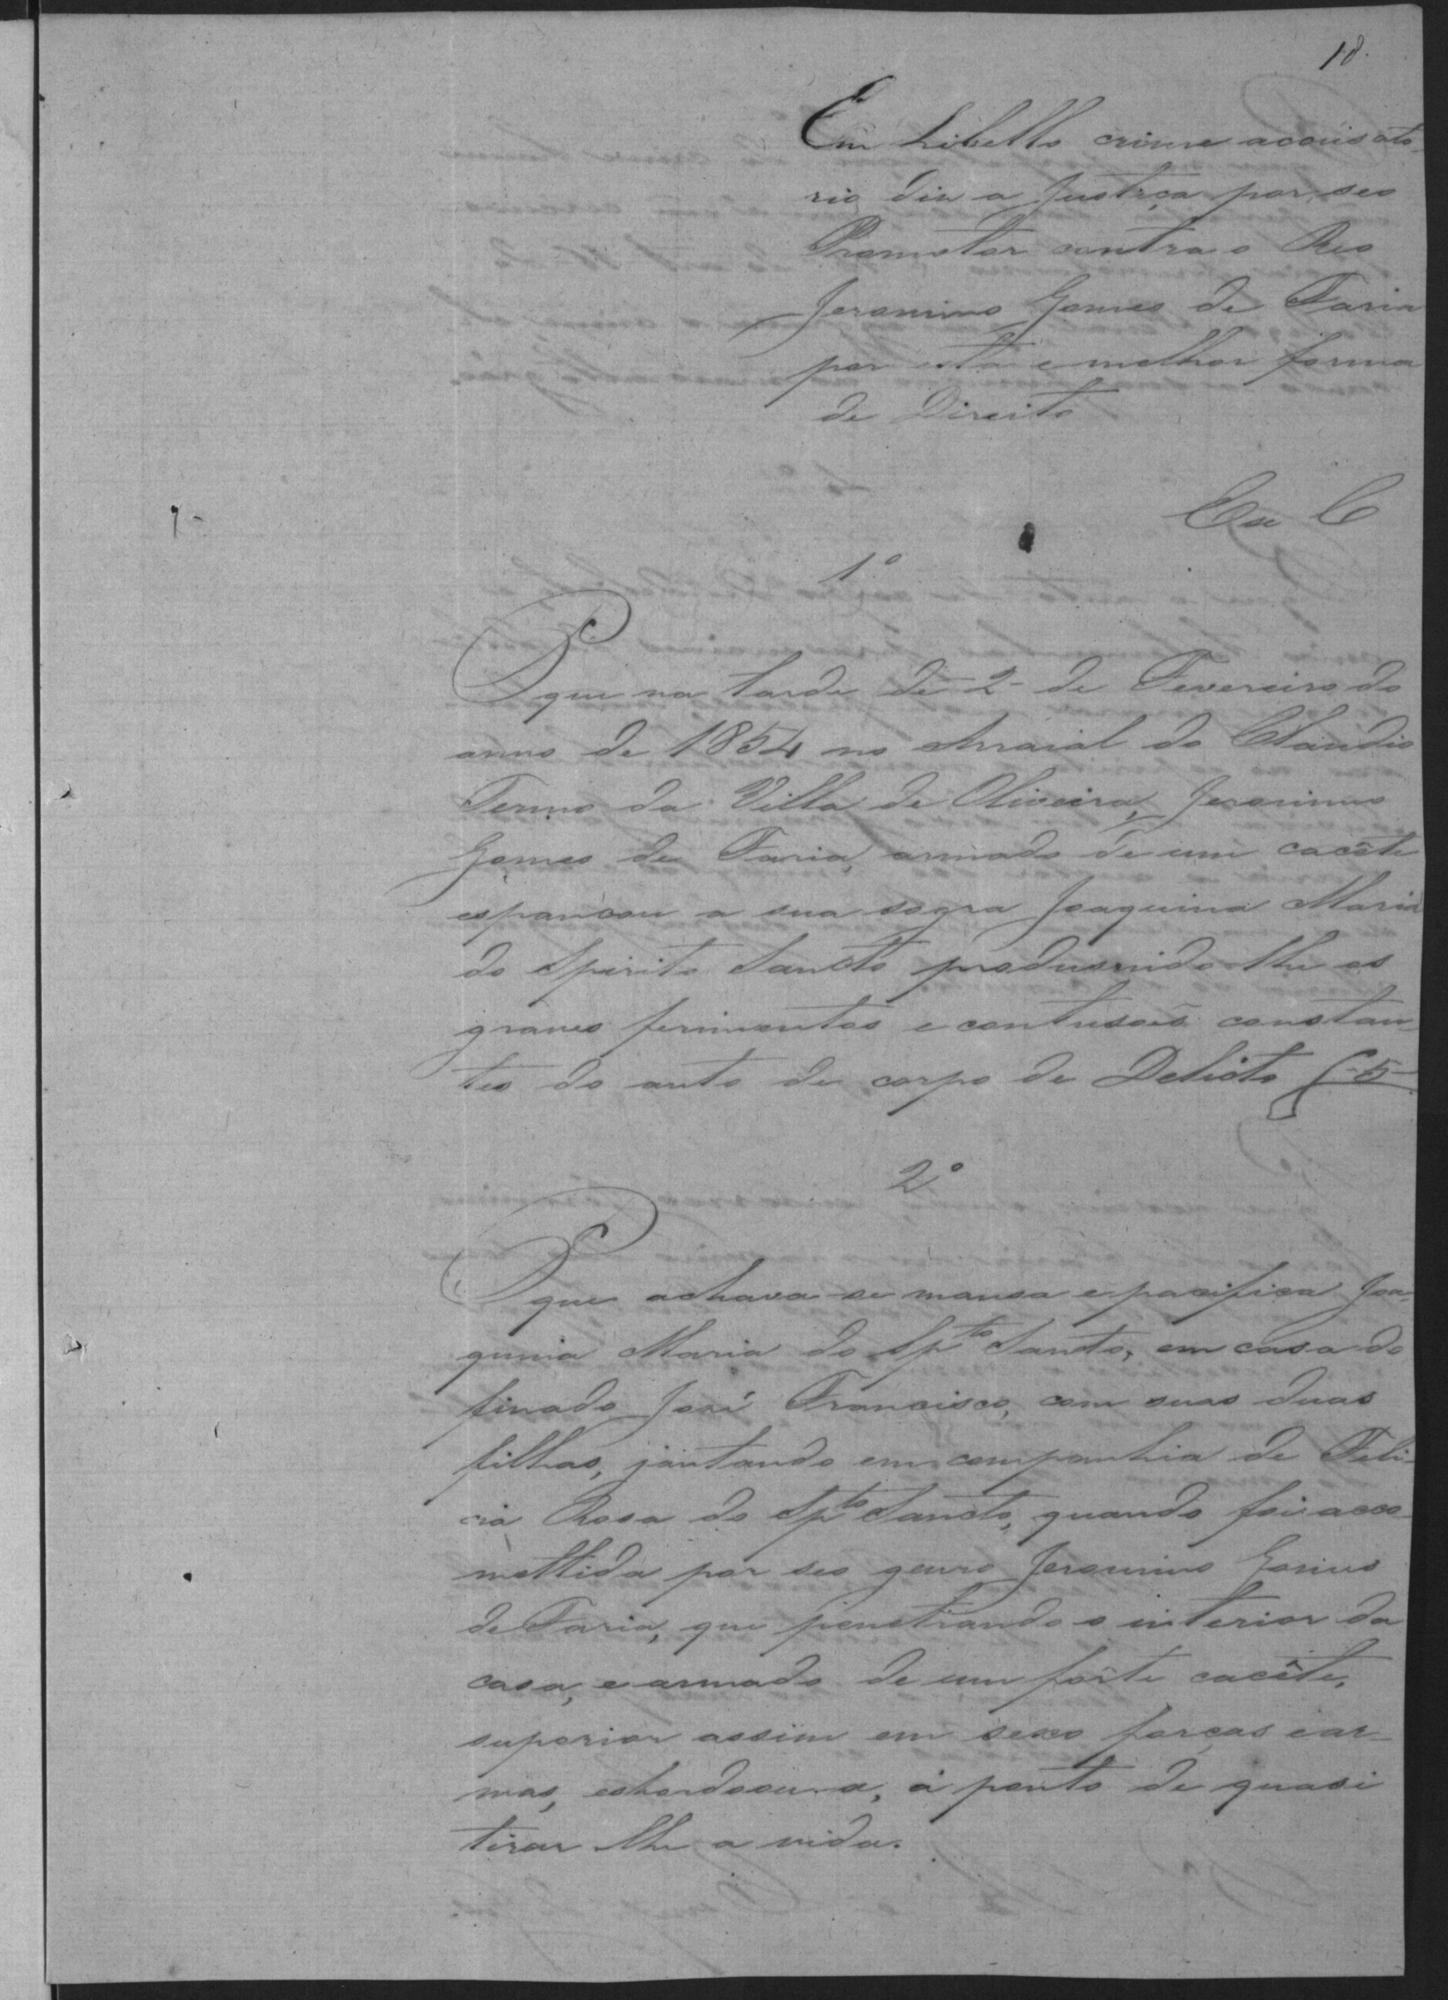 18.
Em Libello crime accusato-
rio diz a Justiça por seo
Promotor contra o Reo
Jeronimo Gomes de Faria
por esta e melhor forma
de Direito
E. S. C.
1º
P. que na tarde de 2 de Fevereiro do
anno de 1854 no Arraial do Claudio
Termo da Villa de Oliveira, Jeronimo
Gomes de Faria, armado de um cacête
espancou a sua sogra Joaquina Maria
do Spirito Sancto produsindo-lhe os
graves ferimentos e contusoês constan-
tes do auto de corpo de Delicto f. 5
2º
P. que achava-se mansa e pacifica Joa-
quina Maria do Spto Santo, em casa do
finado José Francisco, com suas duas
filhas, jantando em companhia de Feli-
cia Rosa do Spto Sancto, quando foi acco-
mettida por seo genro Jeronimo Gomes
de Faria, que penetrando o interior da
casa, e armado de um forte cacête,
superior assim em sexo forças e ar-
mas, esbordoou-a, a ponto de quasi
tirar lhe a vida.